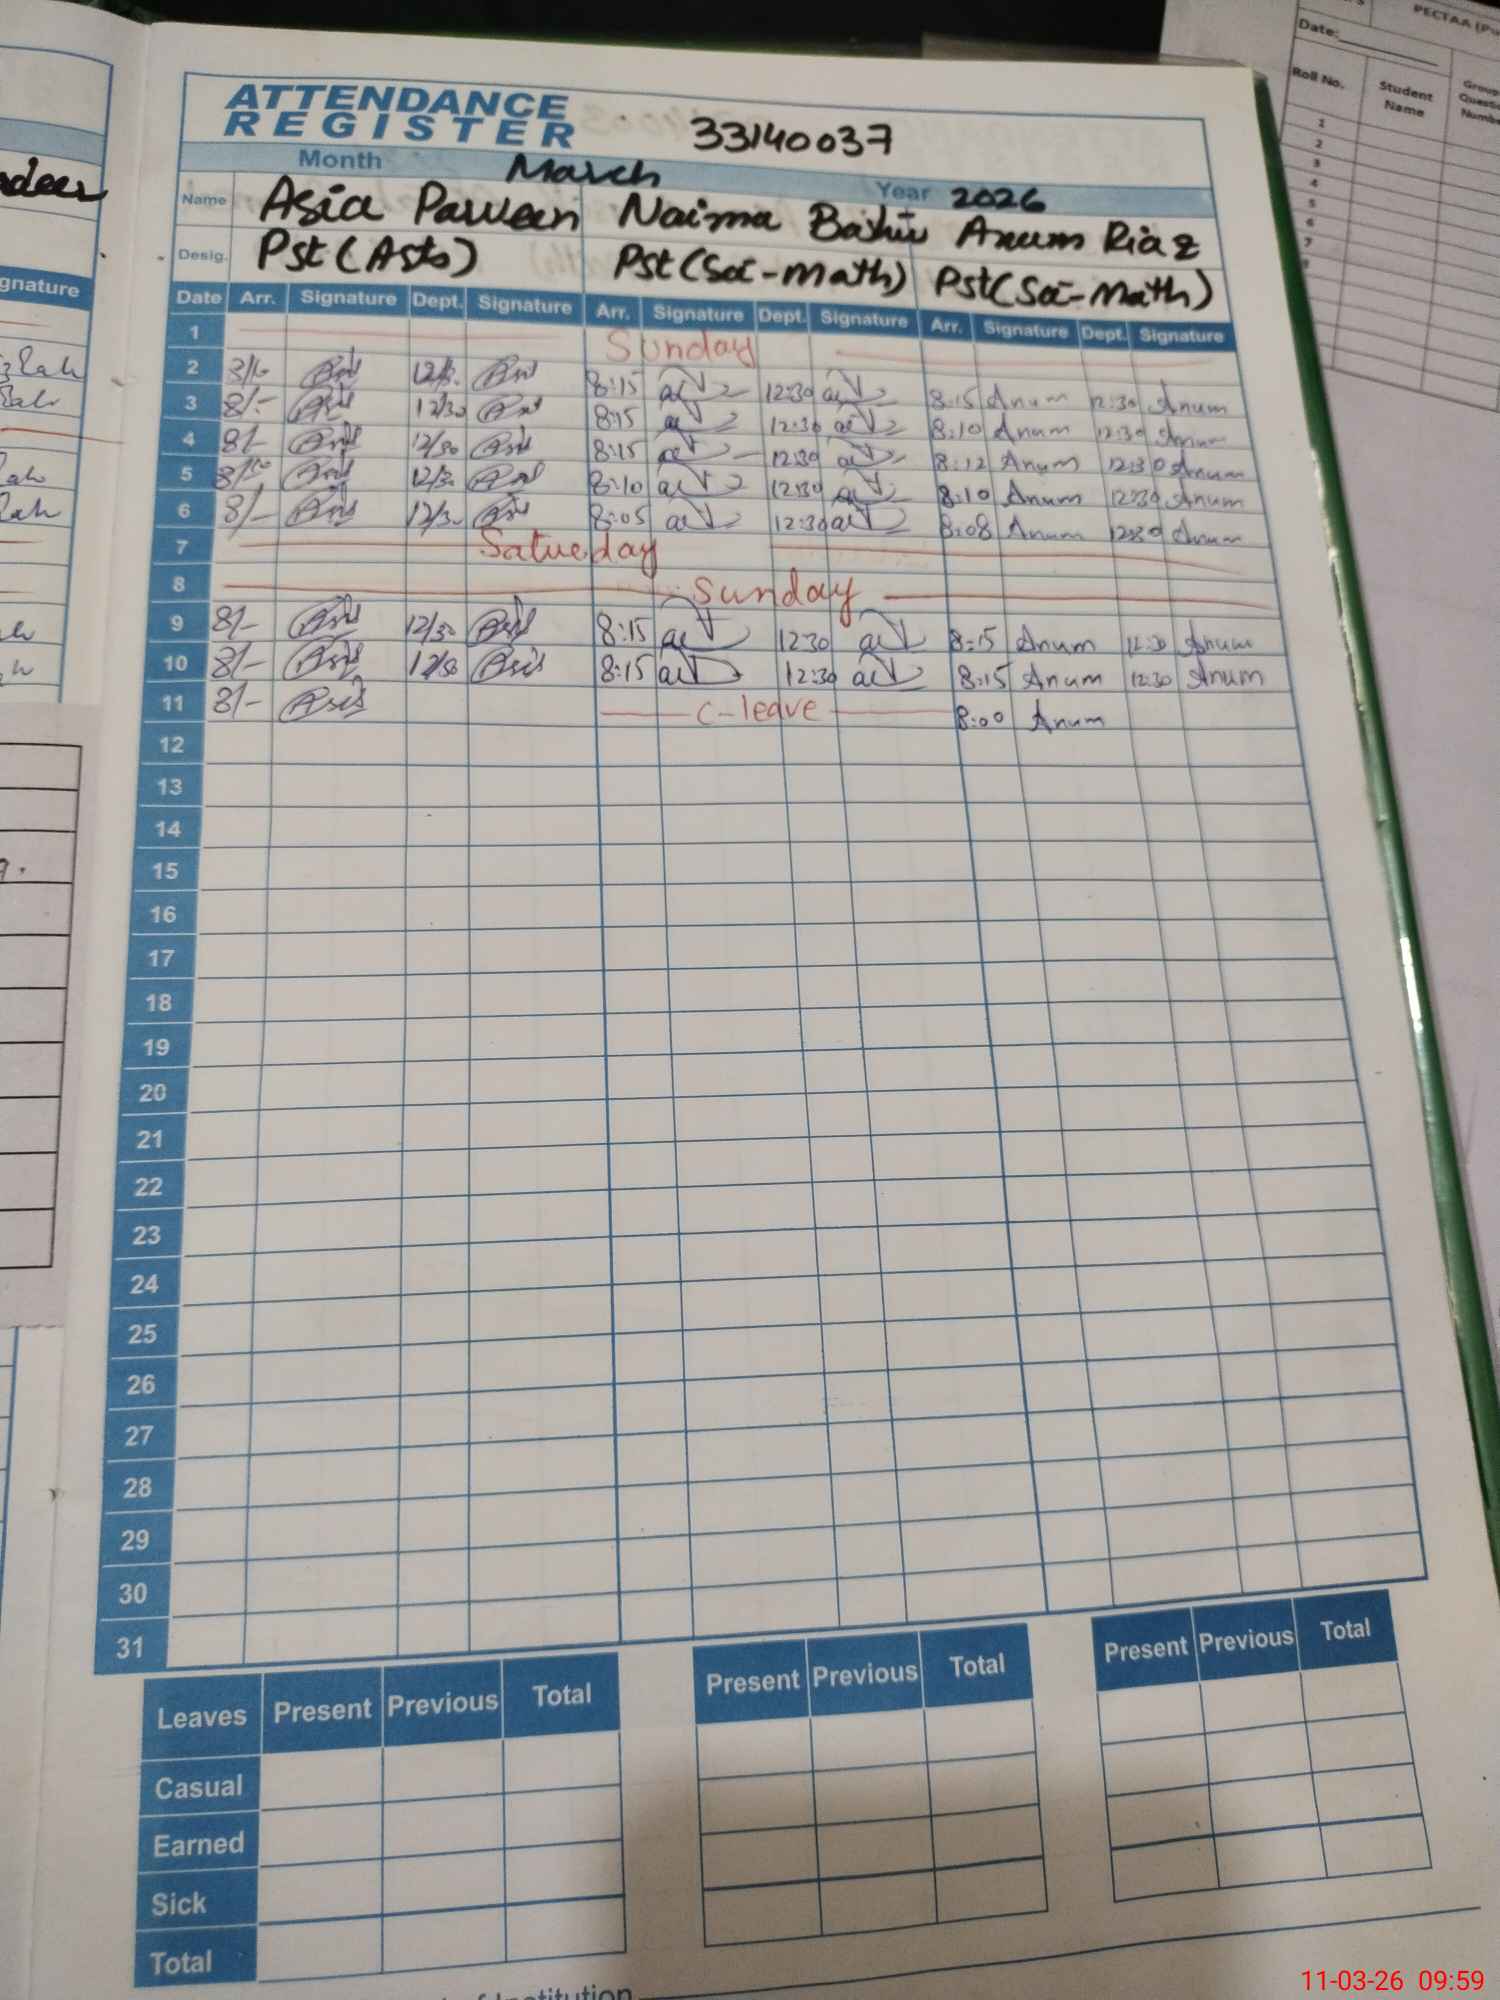 ATTENDANCE
REGISTER
33140037
Month March Year 2026
Name Asia Parveen Naima Bashir Anum Riaz
Desig. Pst (Asto) Pst (Sci-math) Pst (Sci-Math)
Date Arr. Signature Dept. Signature Arr. Signature Dept. Signature Arr. Signature Dept. Signature
1 Sunday
2 12/3. 8:15 12:30 8:15 Anum 12:30 Anum
3 8/- 12/30 8:15 12:30 8:10 Anum 12:30 Anum
4 8/- 12/30 8:15 12:30 8:12 Anum 12:30 Anum
5 12/30 8:10 12:30 8:10 Anum 12:30 Anum
6 8/- 12/3. 8:05 12:30 8:08 Anum 12:30 Anum
7 Satueday
8 Sunday
9 8/- 12/30 8:15 12:30 8:15 Anum 12:30 Anum
10 8/- 12/30 8:15 12:30 8:15 Anum 12:30 Anum
11 8/- C-leave 8:00 Anum
12
13
14
15
16
17
18
19
20
21
22
23
24
25
26
27
28
29
30
31
Leaves Present Previous Total Present Previous Total Present Previous Total
Casual
Earned
Sick
Total
Institution
gnature
PECTAA
Date:
Roll No. Student Name
1
2
3
4
5
6
7
11-03-26 09:59